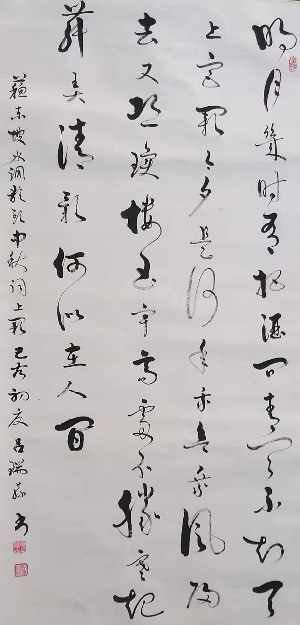 明月幾时有把酒问青天不知天
上宫阙今夕是何年我欲乘风歸
去又恐瓊楼玉宇高處不勝寒起
舞弄清影何似在人间
蘇东坡水调歌头中秋词上阕 己亥初夏 吕瑞书